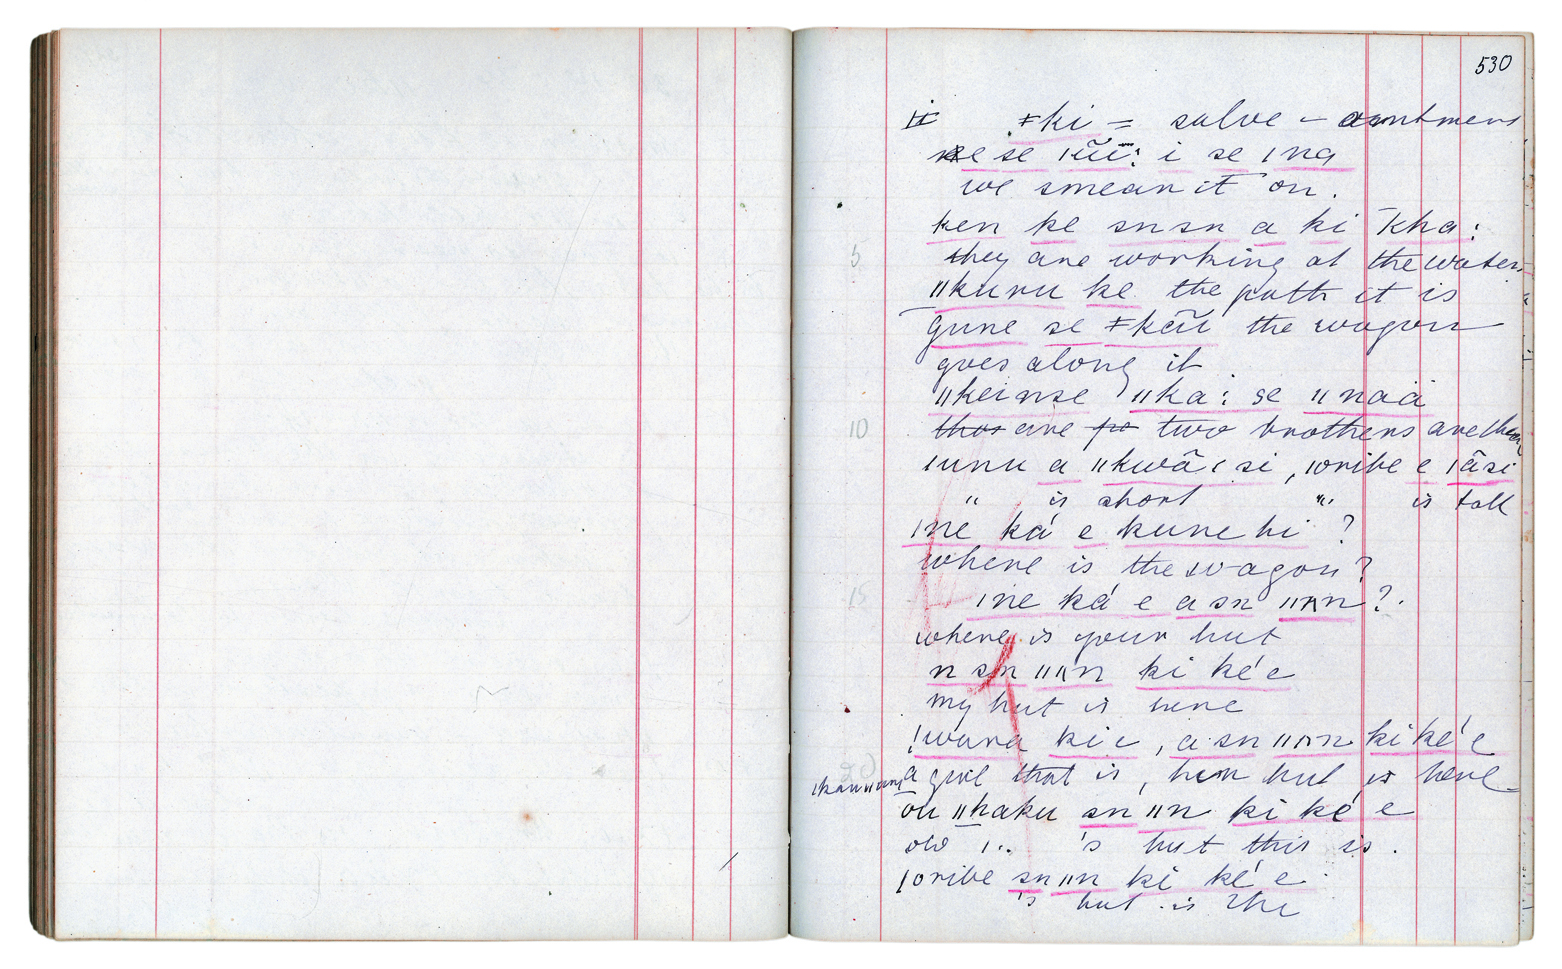 530
ǂki = salve – ointment
se ǀũĩ: i se ǀna
we smear it on.
ken ke snsn a ki kha:
5 they are working at the water
ǁkuru ke the path it is
gune se ǂkãũ the wagon
goes along it
ǁkeinse ǁka: se ǁnaä
10 are two brothers are there
ǀunu a ǁkwãǀ si, ǀoribe e ǀãsi
" is short " is tall
ǀne ká e kune hi ?
where is the wagon?
15 ǀne ká e a sn ǁnn ?.
where is your hut
n sn ǁnn ki ké e
my hut is here
ǃwara ki e, a sn ǁnn ki ké e
20 a girl that is, her hut is here
ou ǁhaku sn ǁn ki ké e
old 's hut this is.
ǀoribe sn ǁnn ki ké e
's hut is the